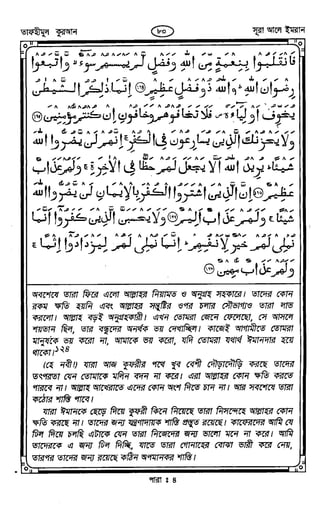 তাফহীমুল কুরআন
৮৩
সূরা আলে ইমরান
فَانْقَلَبُوْا بِنِعْمَةٍ مِّنَ اللهِ وَفَضْلٍ لَّمْ يَمْسَسْهُمْ سُوْٓءٌ وَّاتَّبَعُوْا
رِضْوَانَ اللهِ وَاللهُ ذُوْ فَضْلٍ عَظِيْمٍ ﴿١٧٤﴾ اِنَّمَا ذٰلِكُمُ الشَّيْطٰنُ
يُخَوِّفُ اَوْلِيَآءَهٗ فَلَا تَخَافُوْهُمْ وَخَافُوْنِ اِنْ كُنْتُمْ مُّؤْمِنِيْنَ ﴿١٧٥﴾
وَلَا يَحْزُنْكَ الَّذِيْنَ يُسَارِعُوْنَ فِى الْكُفْرِ اِنَّهُمْ لَنْ يَّضُرُّوا اللهَ
شَيْئًا يُرِيْدُ اللهُ اَلَّا يَجْعَلَ لَهُمْ حَظًّا فِى الْاٰخِرَةِ وَلَهُمْ عَذَابٌ
عَظِيْمٌ ﴿١٧٦﴾ اِنَّ الَّذِيْنَ اشْتَرَوُا الْكُفْرَ بِالْاِيْمَانِ لَنْ يَّضُرُّوا اللهَ
شَيْئًا وَلَهُمْ عَذَابٌ اَلِيْمٌ ﴿١٧٧﴾ وَلَا يَحْسَبَنَّ الَّذِيْنَ كَفَرُوْٓا اَنَّمَا
نُمْلِىْ لَهُمْ خَيْرٌ لِّاَنْفُسِهِمْ اِنَّمَا نُمْلِىْ لَهُمْ لِيَزْدَادُوْٓا اِثْمًا
وَلَهُمْ عَذَابٌ مُّهِيْنٌ ﴿١٧٨﴾
অবশেষে তারা ফিরে এলো আল্লাহর নিয়ামত ও অনুগ্রহ সহকারে। তাদের কোন
রকম ক্ষতি হয়নি এবং আল্লাহর সন্তুষ্টির ওপর চলার সৌভাগ্যও তারা লাভ
করলো। আল্লাহ বড়ই অনুগ্রহকারী। এখন তোমরা জেনে ফেলেছো, সে আসলে
শয়তান ছিল, তার বন্ধুদের অনর্থক ভয় দেখাচ্ছিল। কাজেই আগামীতে তোমরা
মানুষকে ভয় করো না, আমাকে ভয় করো, যদি তোমরা যথার্থ ঈমানদার হয়ে
থাকো।১২৪
(হে নবী!) যারা আজ কুফরীর পথে খুব বেশী দৌড়াদৌড়ি করছে তাদের
তৎপরতা যেন তোমাকে মলিন বদন না করে। এরা আল্লাহর কোন ক্ষতি করতে
পারবে না। আল্লাহ আখেরাতে এদের কোন অংশ দিতে চান না। আর সবশেষে তারা
কঠোর শাস্তি পাবে।
যারা ঈমানকে ছেড়ে দিয়ে কুফরী কিনে নিয়েছে তারা নিসন্দেহে আল্লাহর কোন
ক্ষতি করছে না। তাদের জন্য যন্ত্রণাদায়ক শাস্তি প্রস্তুত রয়েছে। কাফেরদের আমি যে
ঢিল দিয়ে চলছি এটাকে যেন তারা নিজেদের জন্য ভালো মনে না করে। আমি
তাদেরকে এ জন্য ঢিল দিচ্ছি, যাতে তারা গোনাহের বোঝা ভারী করে নেয়,
তারপর তাদের জন্য রয়েছে কঠিন অপমানকর শাস্তি।
পারা : ৪